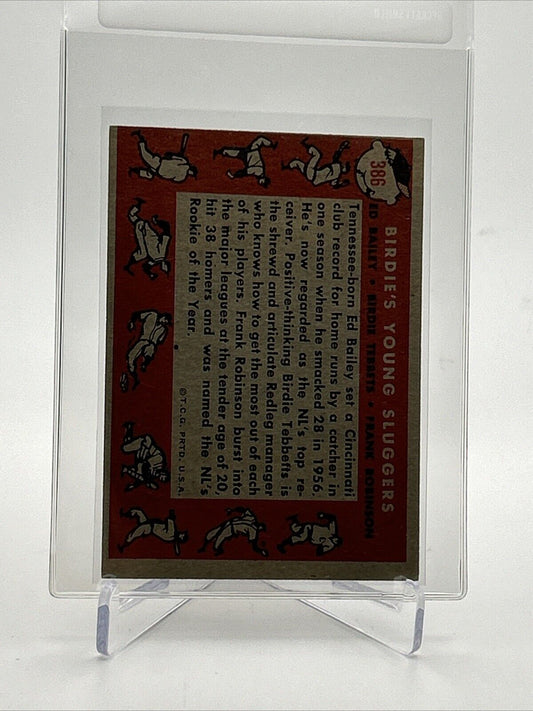 386
BIRDIE'S YOUNG SLUGGERS
ED BAILEY • BIRDIE TEBBETTS • FRANK ROBINSON
Tennessee-born Ed Bailey set a Cincinnati
club record for home runs by a catcher in
one season when he smacked 28 in 1956.
He's now regarded as the NL's top re-
ceiver. Positive-thinking Birdie Tebbetts is
the shrewd and articulate Redleg manager
who knows how to get the most out of each
of his players. Frank Robinson burst into
the major leagues at the tender age of 20,
hit 38 homers and was named the NL's
Rookie of the Year.
© T.C.G. PRTD. U.S.A.